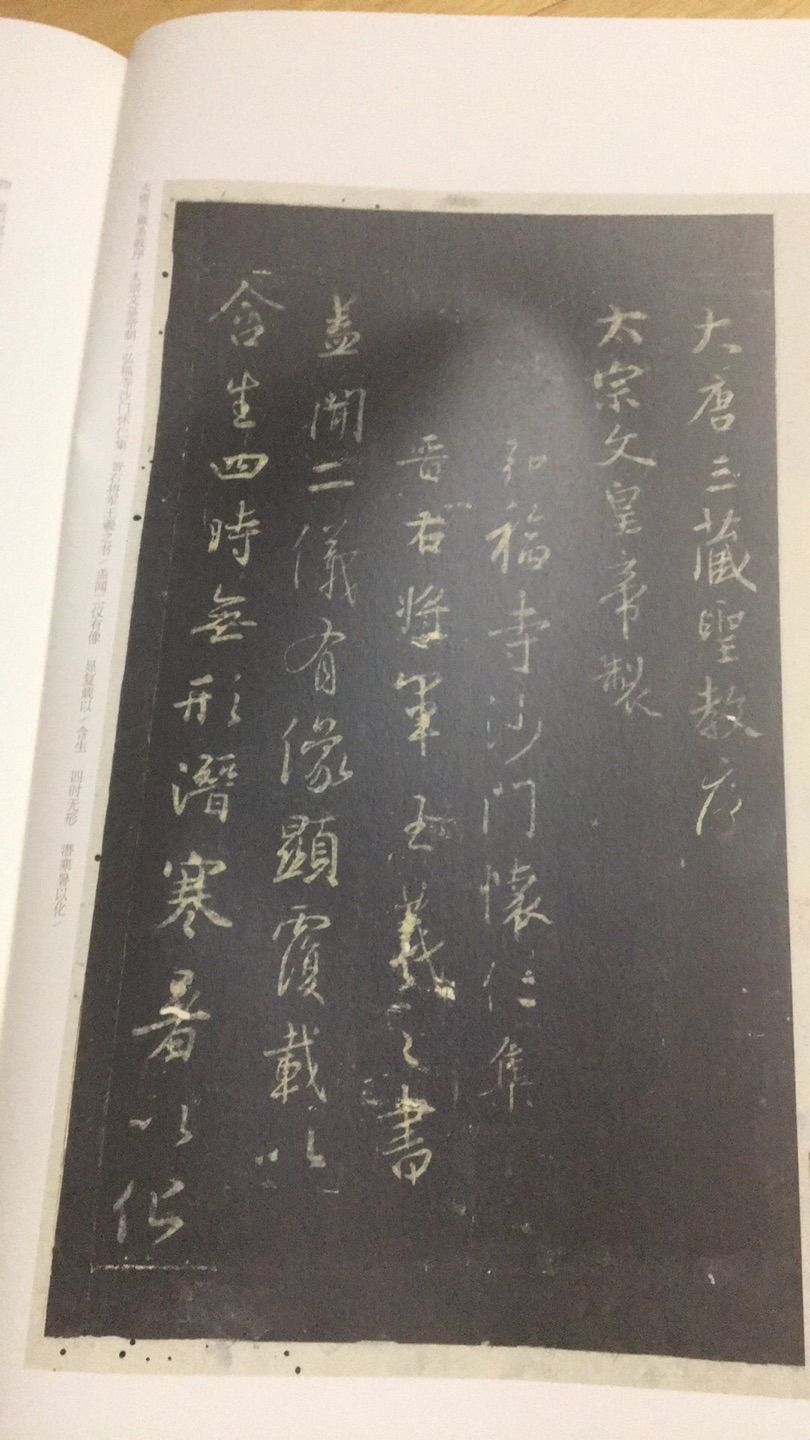 大唐三藏聖教序
太宗文皇帝製
弘福寺沙門懷仁集
晉右將軍王羲之書
盖聞二儀有像顯覆載以
含生四時無形潛寒暑以化
大唐三藏圣教序 太宗文皇帝制/弘福寺沙门怀仁集 晋右将军王羲之书/盖闻二仪有像 显复载以/含生 四时无形 潜寒暑以化/